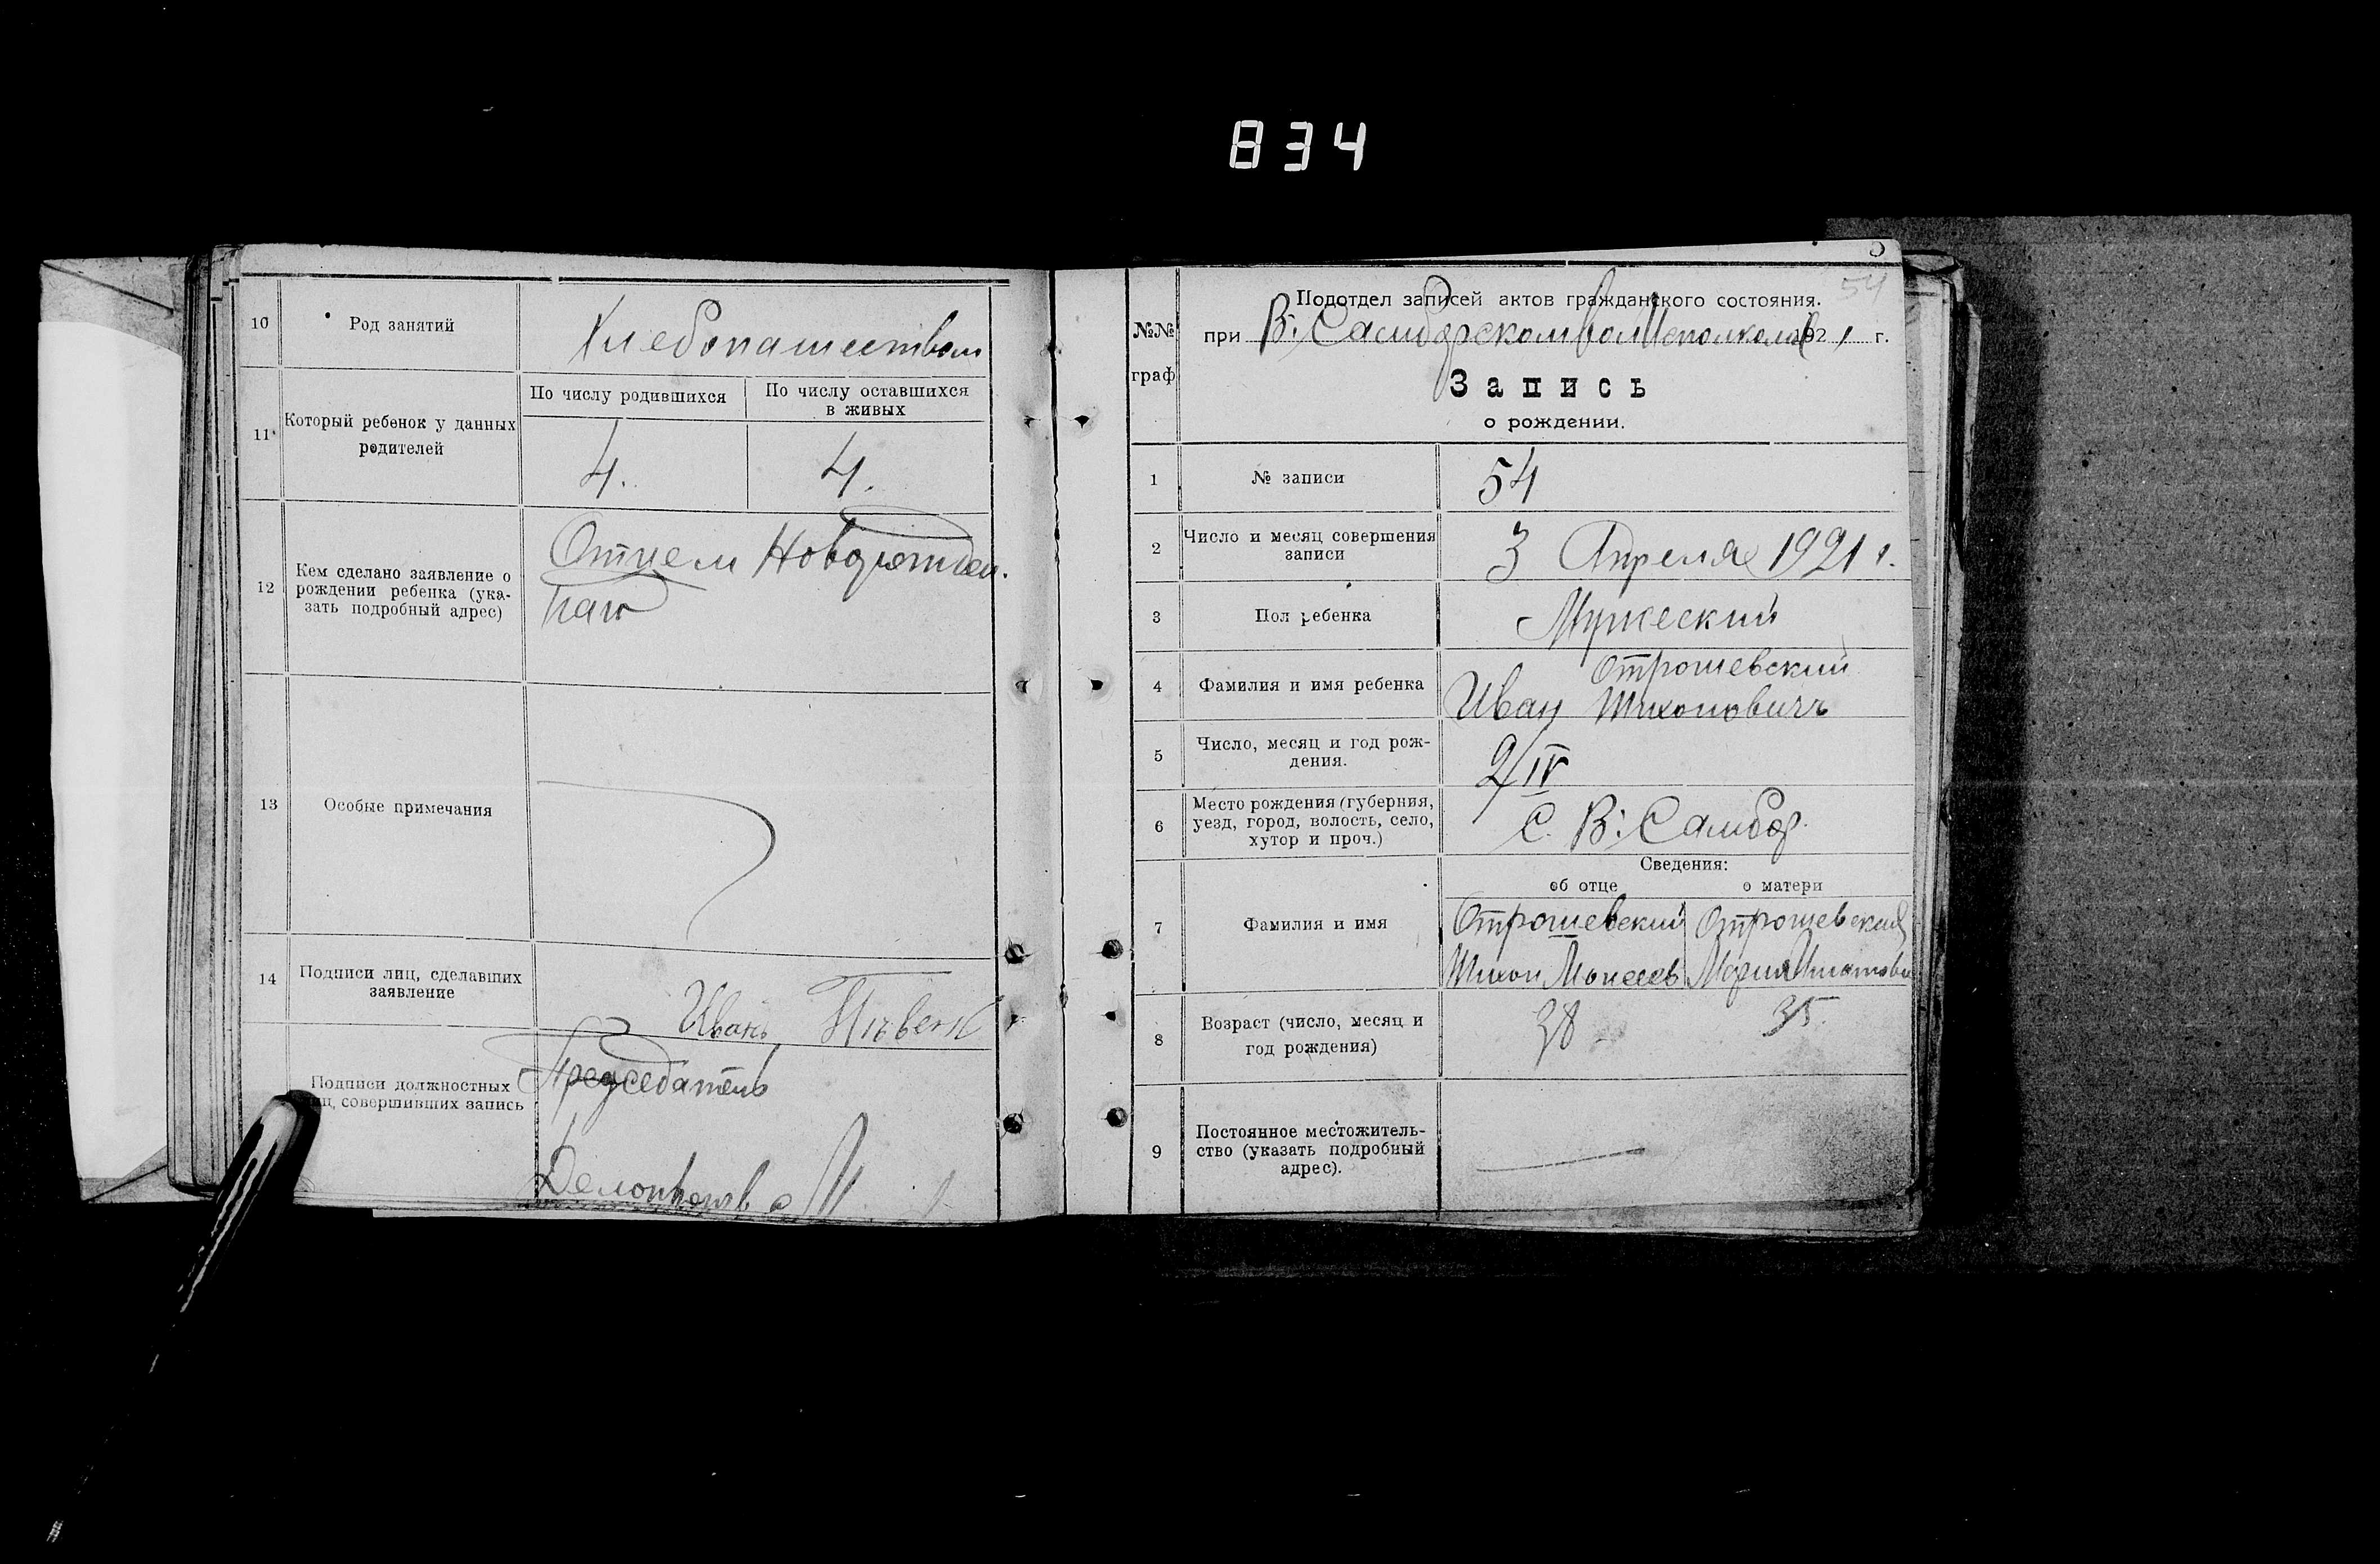 834
10
Род занятий
Хлебопашеством
11
Который ребенок у данных
родителей
По числу родившихся
По числу оставшихся
в живых
4.
4.
12
Кем сделано заявление о
рождении ребенка (ука-
зать подробный адрес)
Отцем
13
Особые примечания
14
Подписи лиц, сделавших
заявление
Иванъ
Подписи должностных
совершивших запись
Председатель
5
54
№№
граф
Подотдел записей актов гражданского состояния.
при В: Самборском волИсполкоме 1921 г.
Запись
о рождении.
1
№ записи
54
2
Число и месяц совершения
записи
3 Апреля 1921 г.
3
Пол ребенка
Мужеский
4
Фамилия и имя ребенка
Отрошевский
Иван Тихоновичъ
5
Число, месяц и год рож-
дения.
2/IV
6
Место рождения (губерния,
уезд, город, волость, село,
хутор и проч.)
С. В: Самбор.
Сведения:
об отце
о матери
7
Фамилия и имя
Отрошевский
Тихон Моисеев
Отрошевская
Мария
8
Возраст (число, месяц и
год рождения)
38
35.
9
Постоянное местожитель-
ство (указать подробный
адрес).